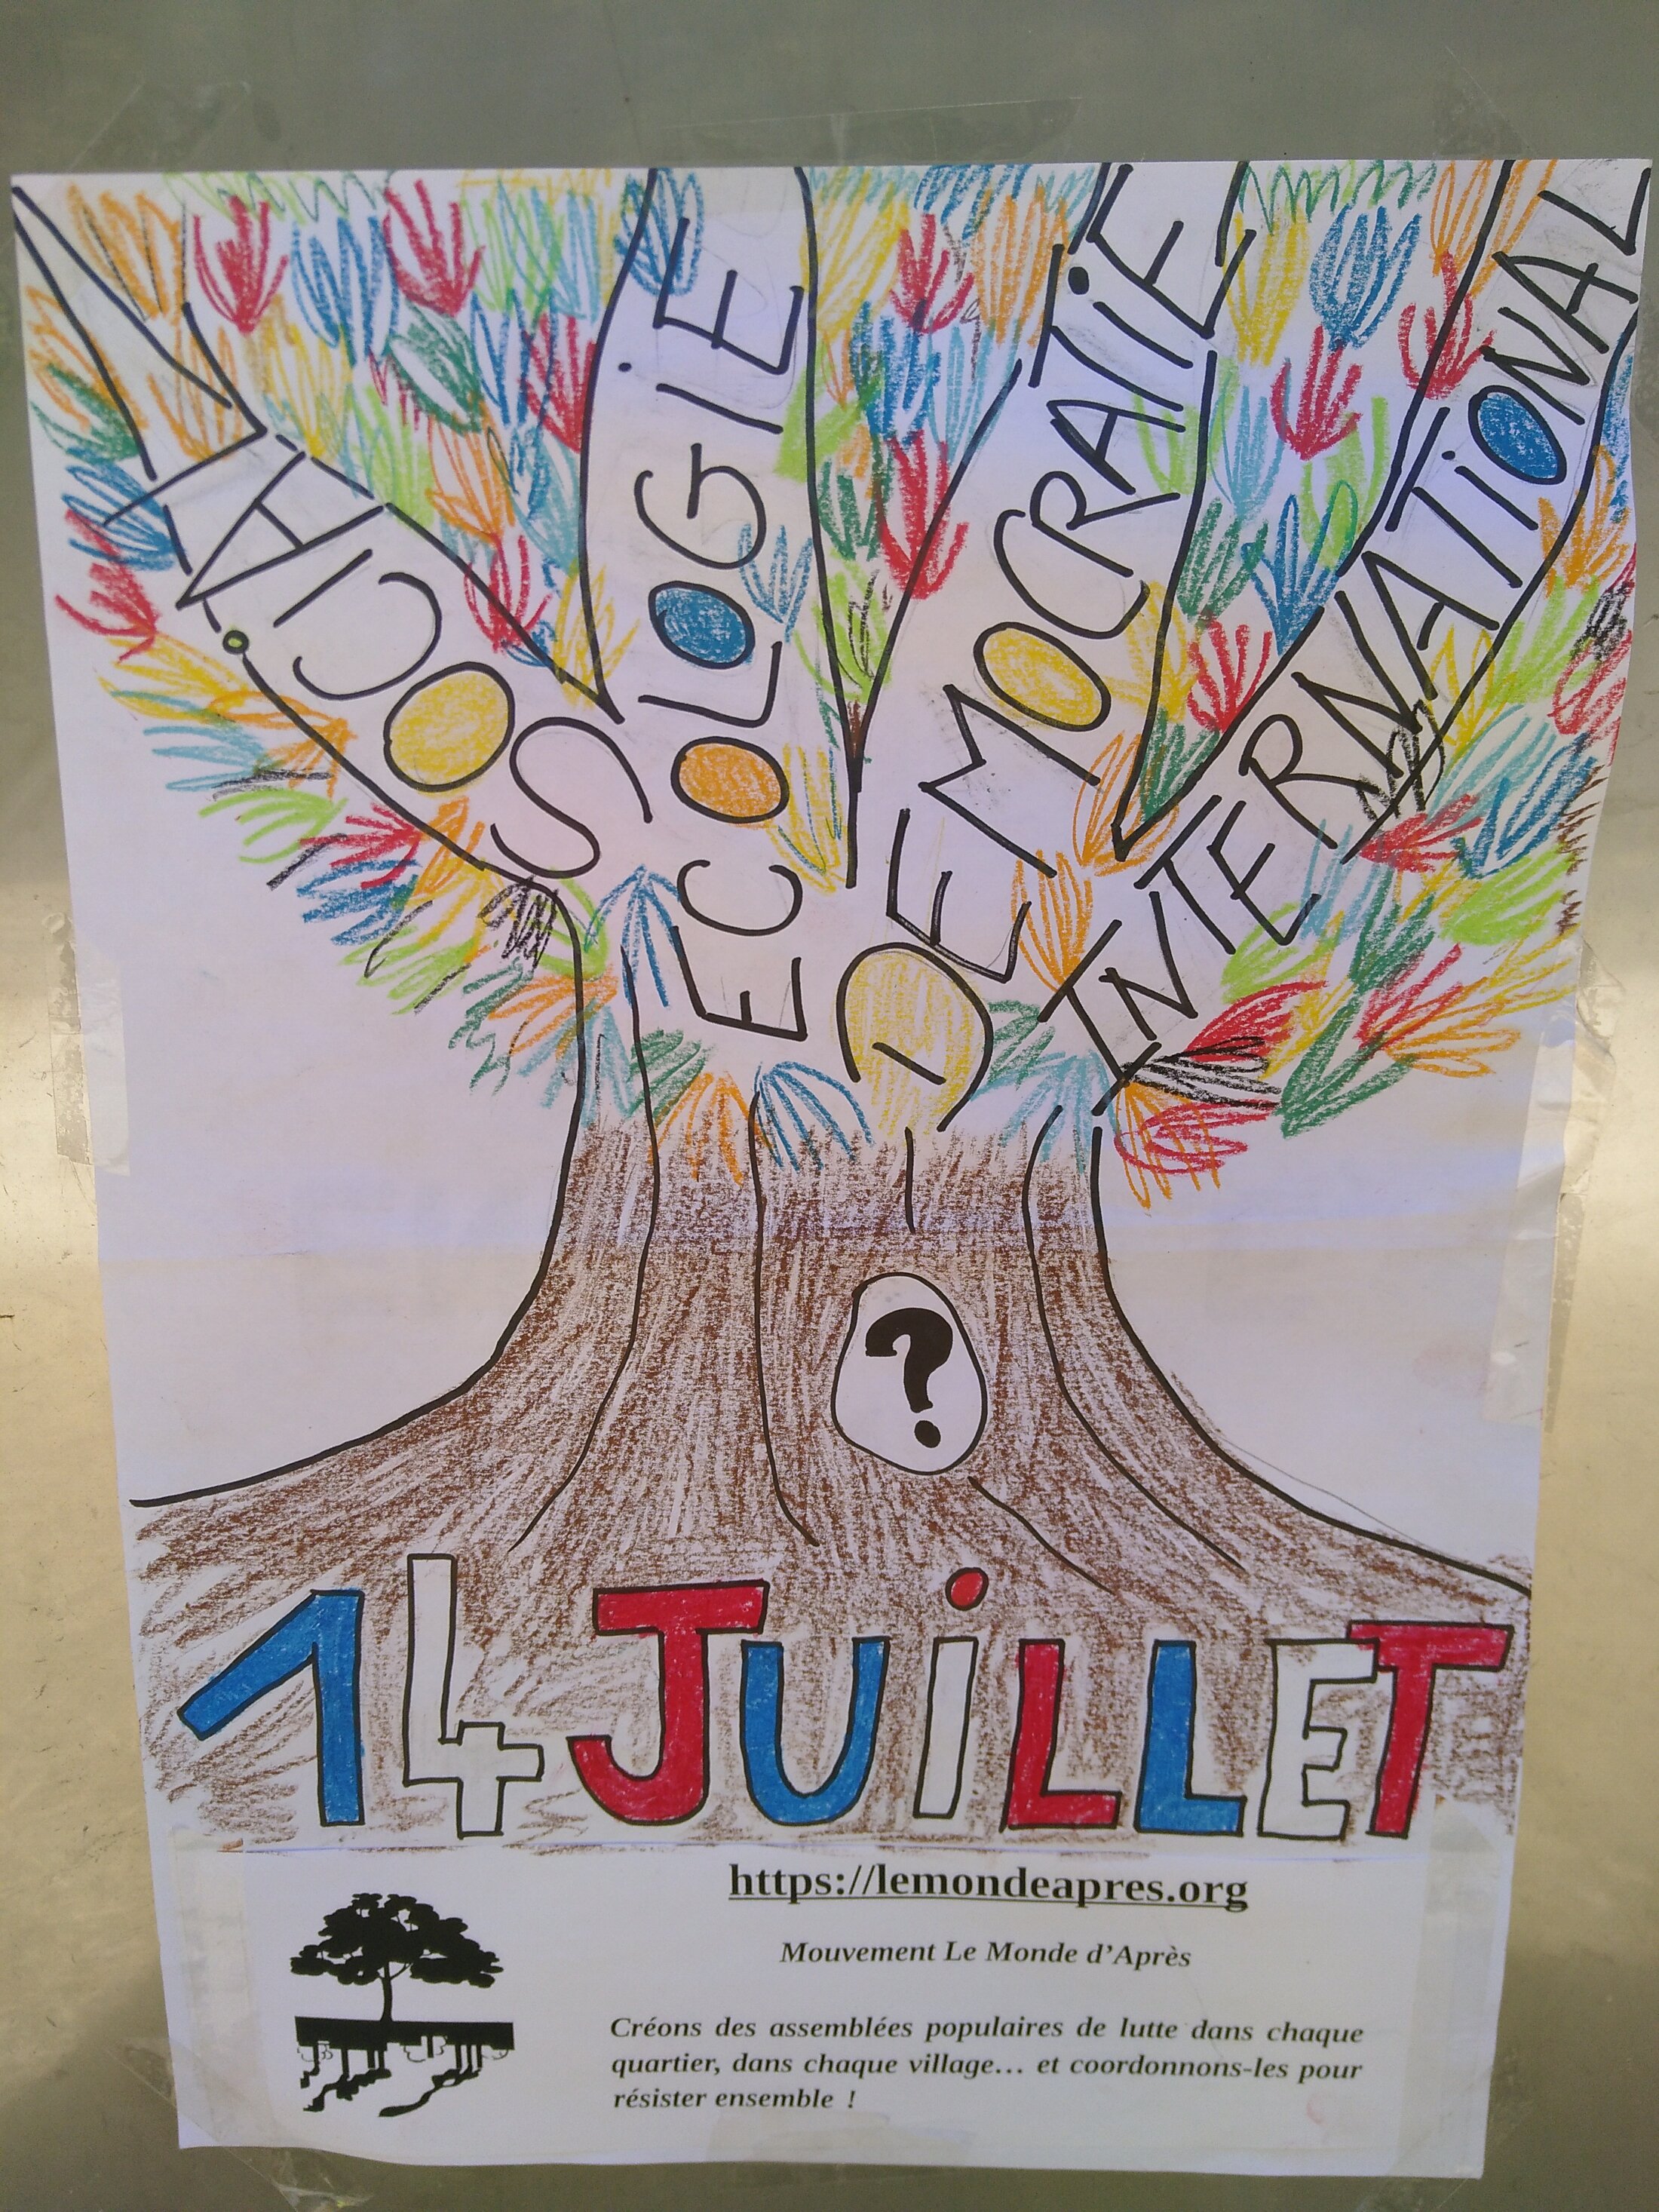 SOCIAL
ECOLOGiE
DEMOCRATiE
INTERNATiONAL
?
14 JUiLLET
https://lemondeapres.org
Mouvement Le Monde d'Après
Créons des assemblées populaires de lutte dans chaque
quartier, dans chaque village... et coordonnons-les pour
résister ensemble !